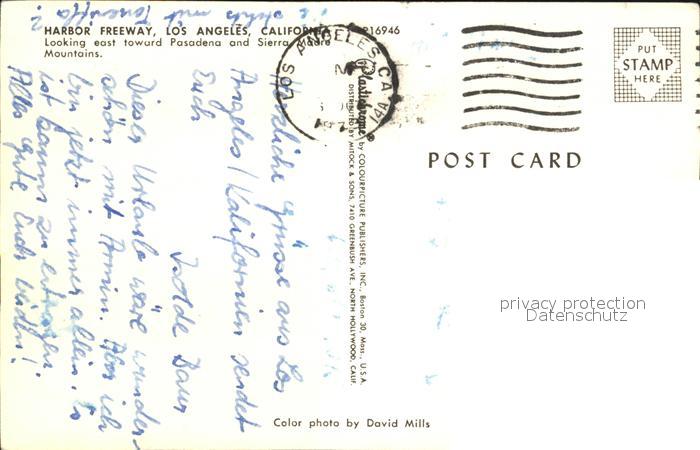 HARBOR FREEWAY, LOS ANGELES, CALIFORNIA P16946
Looking east toward Pasadena and Sierra Madre
Mountains.
LOS ANGELES, CA
PUT
STAMP
HERE
POST CARD
Plastichrome® by COLOURPICTURE PUBLISHERS, INC., Boston 30, Mass., U.S.A.
DISTRIBUTED BY MITOCK & SONS, 7410 GREENBUSH AVE., NORTH HOLLYWOOD, CALIF.
Herzliche Grüsse aus Los
Angeles/Kalifornien sendet
Euch
Isolde Baur
Dieser Urlaub wäre wunder-
schön mit Armin. Aber ich
bin jetzt immer allein. Es
ist kaum zu ertragen
Alles Gute Euch beiden!
mit Teneriffa?
Color photo by David Mills
privacy protection
Datenschutz